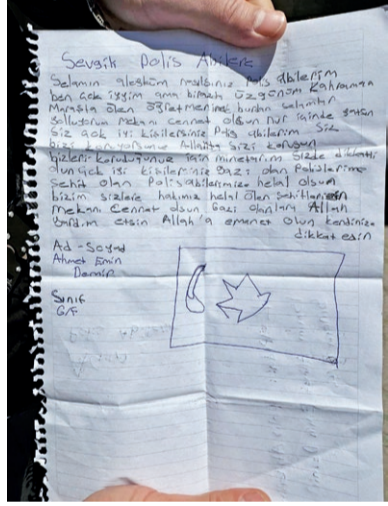 Sevgili Polis Abilere
Selamün aleyküm nasılsınız Polis abilerim
ben çok iyiyim ama biraz üzgünüm Kahraman
Maraşta ölen öğretmenlere burdan selamlar
yolluyorum mekanı cennet olsun nur içinde yatsın
Siz çok iyi kişilersiniz Polis abilerim Siz
bizi koruyorsunuz Allahta Sizi korusun
bizleri koruduğunuz için minetarım Sizde dikkatli
olun çok iyi kişilersiniz Gazi olan Polislerime
Şehit olan Polis abilerimize helal olsun
bizim sizlere hakımız helal ölen şehitlerin
mekanı cennet olsun Gazi olanlara Allah
yardım etsin Allah'a emanet olun kendinize
dikkat edin
Ad - Soyad
Ahmet Emin
Demir
Sınıf
6/F